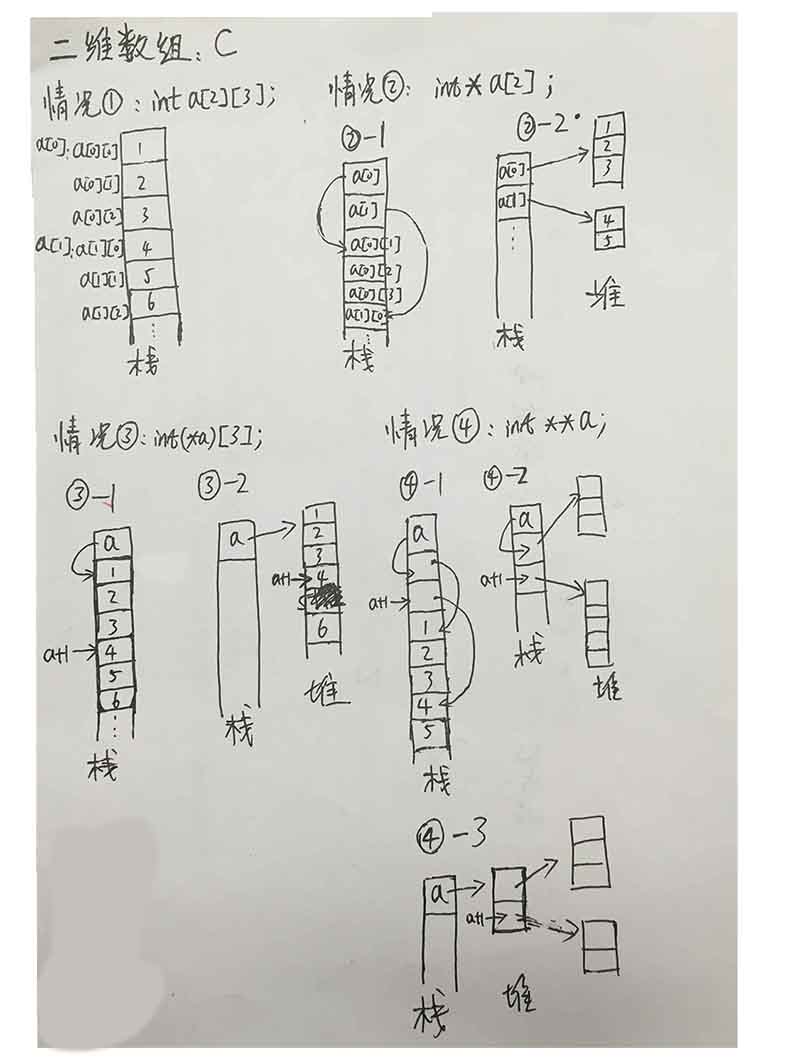 二维数组：C
情况①：int a[2][3];
a[0]：a[0][0] 1
a[0][1] 2
a[0][2] 3
a[1]：a[1][0] 4
a[1][1] 5
6
⋮
栈
情况②：int* a[2];
②-1
a[0]
a[1]
a[0][1]
a[0][2]
a[0][3]
a[1][0]
⋮
栈
②-2
a[0]
a[1]
⋮
栈
1
2
3
4
5
堆
情况③：int(*a)[3];
③-1
a
1
2
3
a+1 4
5
6
⋮
栈
③-2
a
栈
1
2
3
a+1 4
5
6
堆
情况④：int **a;
④-1
a
a+1
1
2
3
4
5
栈
④-2
a
a+1
栈
堆
④-3
a
栈
a+1
堆